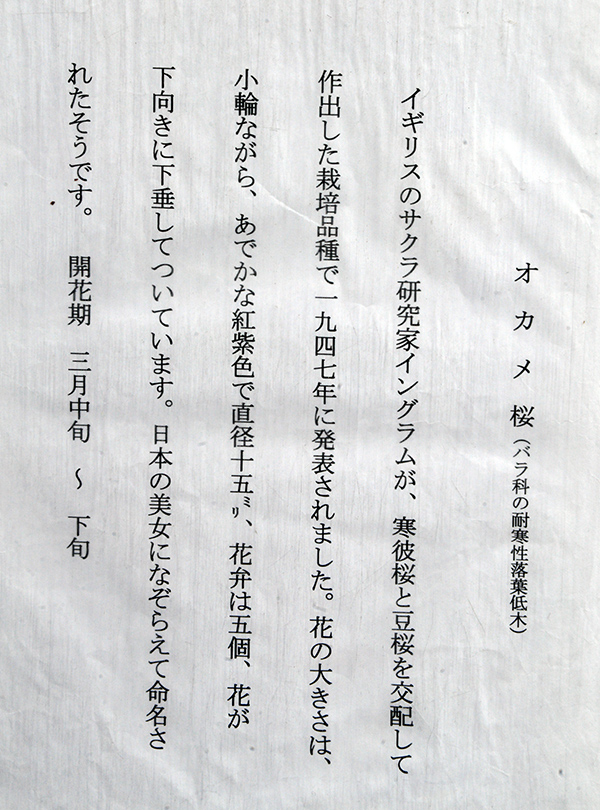 オカメ桜(バラ科の耐寒性落葉低木)
イギリスのサクラ研究家イングラムが、寒彼桜と豆桜を交配して
作出した栽培品種で一九四七年に発表されました。花の大きさは、
小輪ながら、あでかな紅紫色で直径十五㍉、花弁は五個、花が
下向きに下垂してついています。日本の美女になぞらえて命名さ
れたそうです。 開花期 三月中旬 ～ 下旬